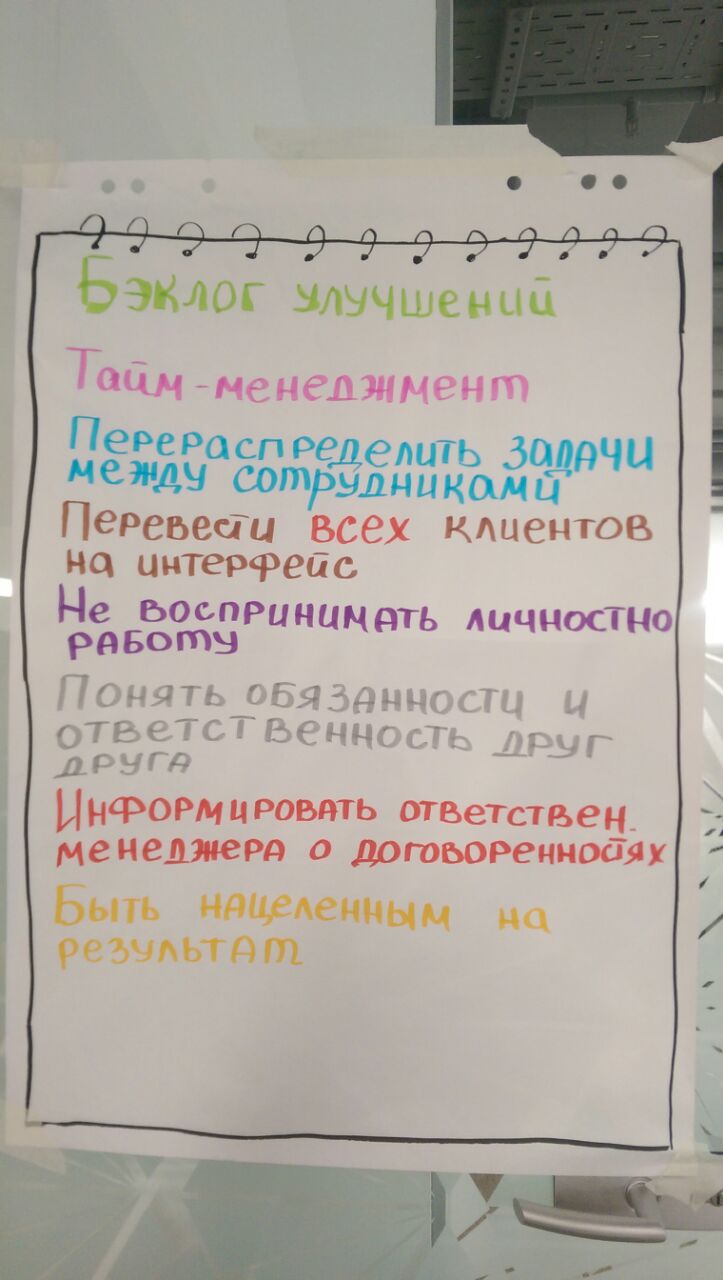 Бэклог улучшений
Тайм-менеджмент
Перераспределить задачи
между сотрудниками
Перевести всех клиентов
на интерфейс
Не воспринимать личностно
работу
Понять обязанности и
ответственность друг
друга
Информировать ответствен.
менеджера о договоренностях
Быть нацеленным на
результат